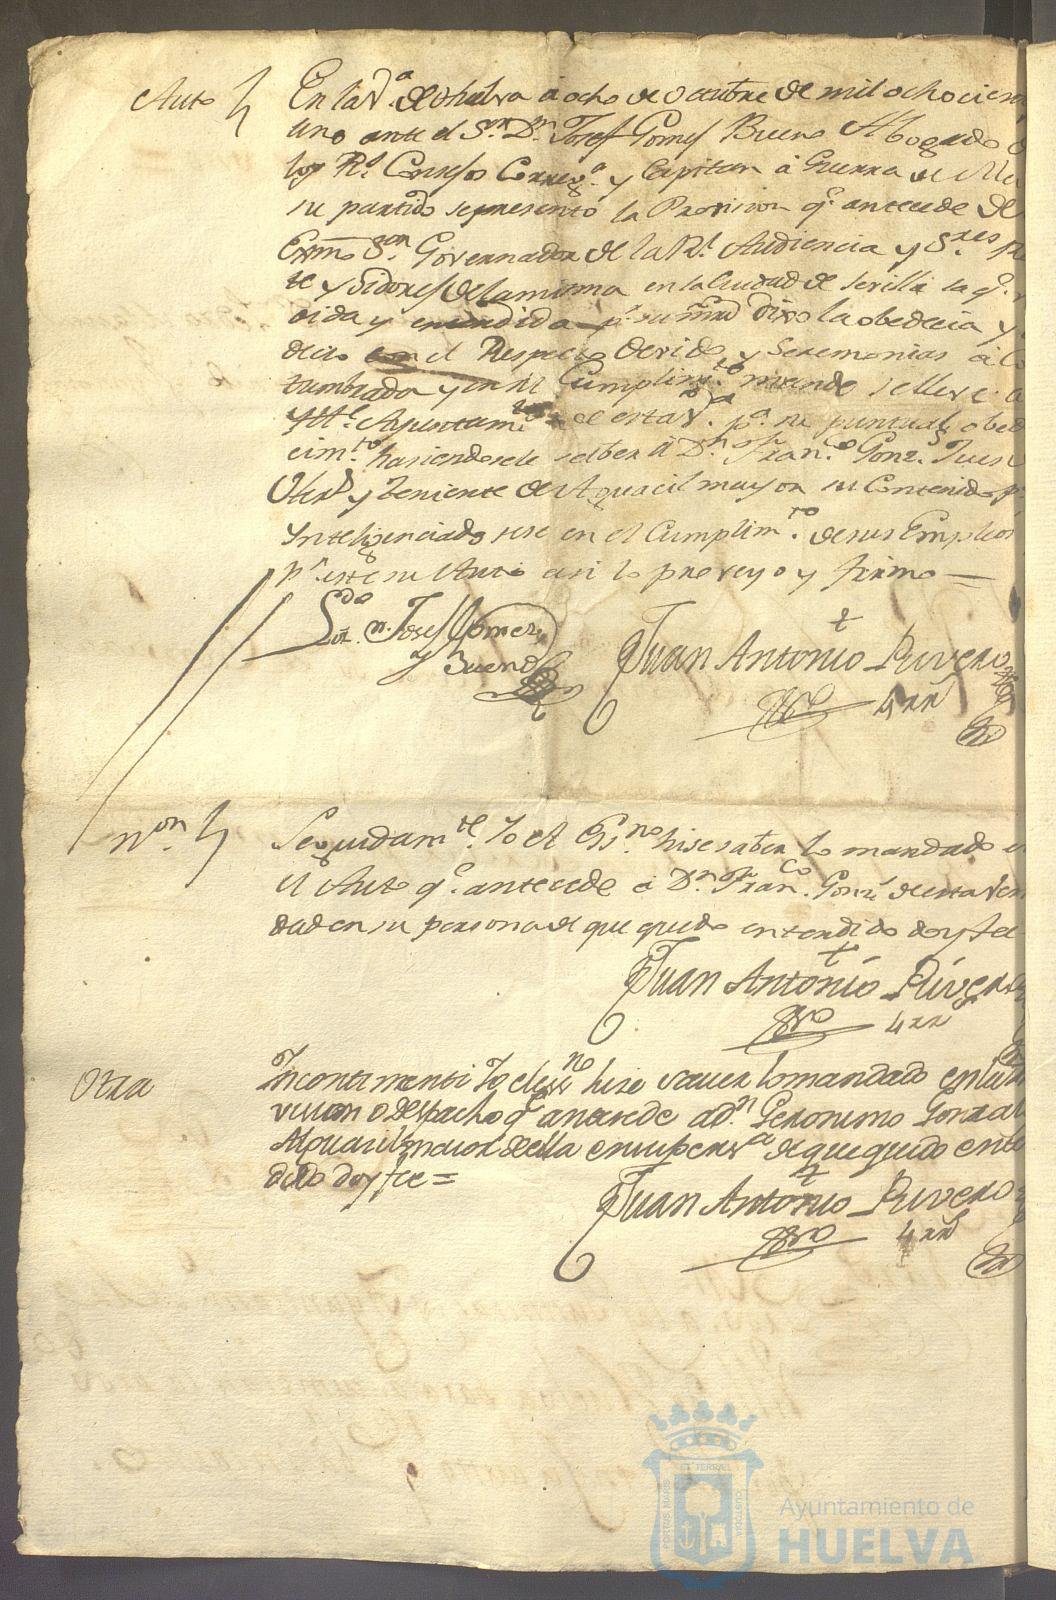 Auto
En la Vª. de Huelva a ocho de Octubre de mil ochocien
uno ante el Sor. Dn. Josef Gomes Bueno Abogado
los Rs. Consejos Corregr. y Capitan a Guerra de
su partido se presentó la Provision qe. antecede del
Exmo Sor. Governador de la Rl. Audiencia y Sres
te y Oidores de la misma en la Ciudad de Sevilla la qe.
oida y entendida pr. su mrd Dixo la obedecia y
decio con el Respecto devido y Seremonias a Co
tumbrada y en su Cumplimto. mando se lleve a
Yltre. Ayuntamto. de esta Va. pa. su puntual obed
cimto. hasiendosele saber a Dn. Franco. Gonzs. Jues
y Teniente de Alguacil mayor su Contenido pa.
Ynteligenciado sese en el Cumplimto. de sus Empleos
Pr. este su Auto asi lo proveyo y firmo
Lizdo. Dn. Josef Gomez
y Bueno
Juan Antonio Rivero
non.
Seguidamte. Yo el Essno. hise saber lo mandado e
el Auto qe. antecede a Dn. Franco. Gonz. de esta Vein
dad en su persona de que quedo entendido doy fee
Juan Antonio Rivero
Otra
Incontinenti Yo el essno hise saver lo mandado en la
vicion o despacho qe antesede a dn Geronimo Gonzal
Alguacil maior de ella en su persna de que quedo ente
dido doy fee =
Juan Antonio Rivero
PORTUS MARIS
ET TERRAE
CUSTODIA
Ayuntamiento de
HUELVA